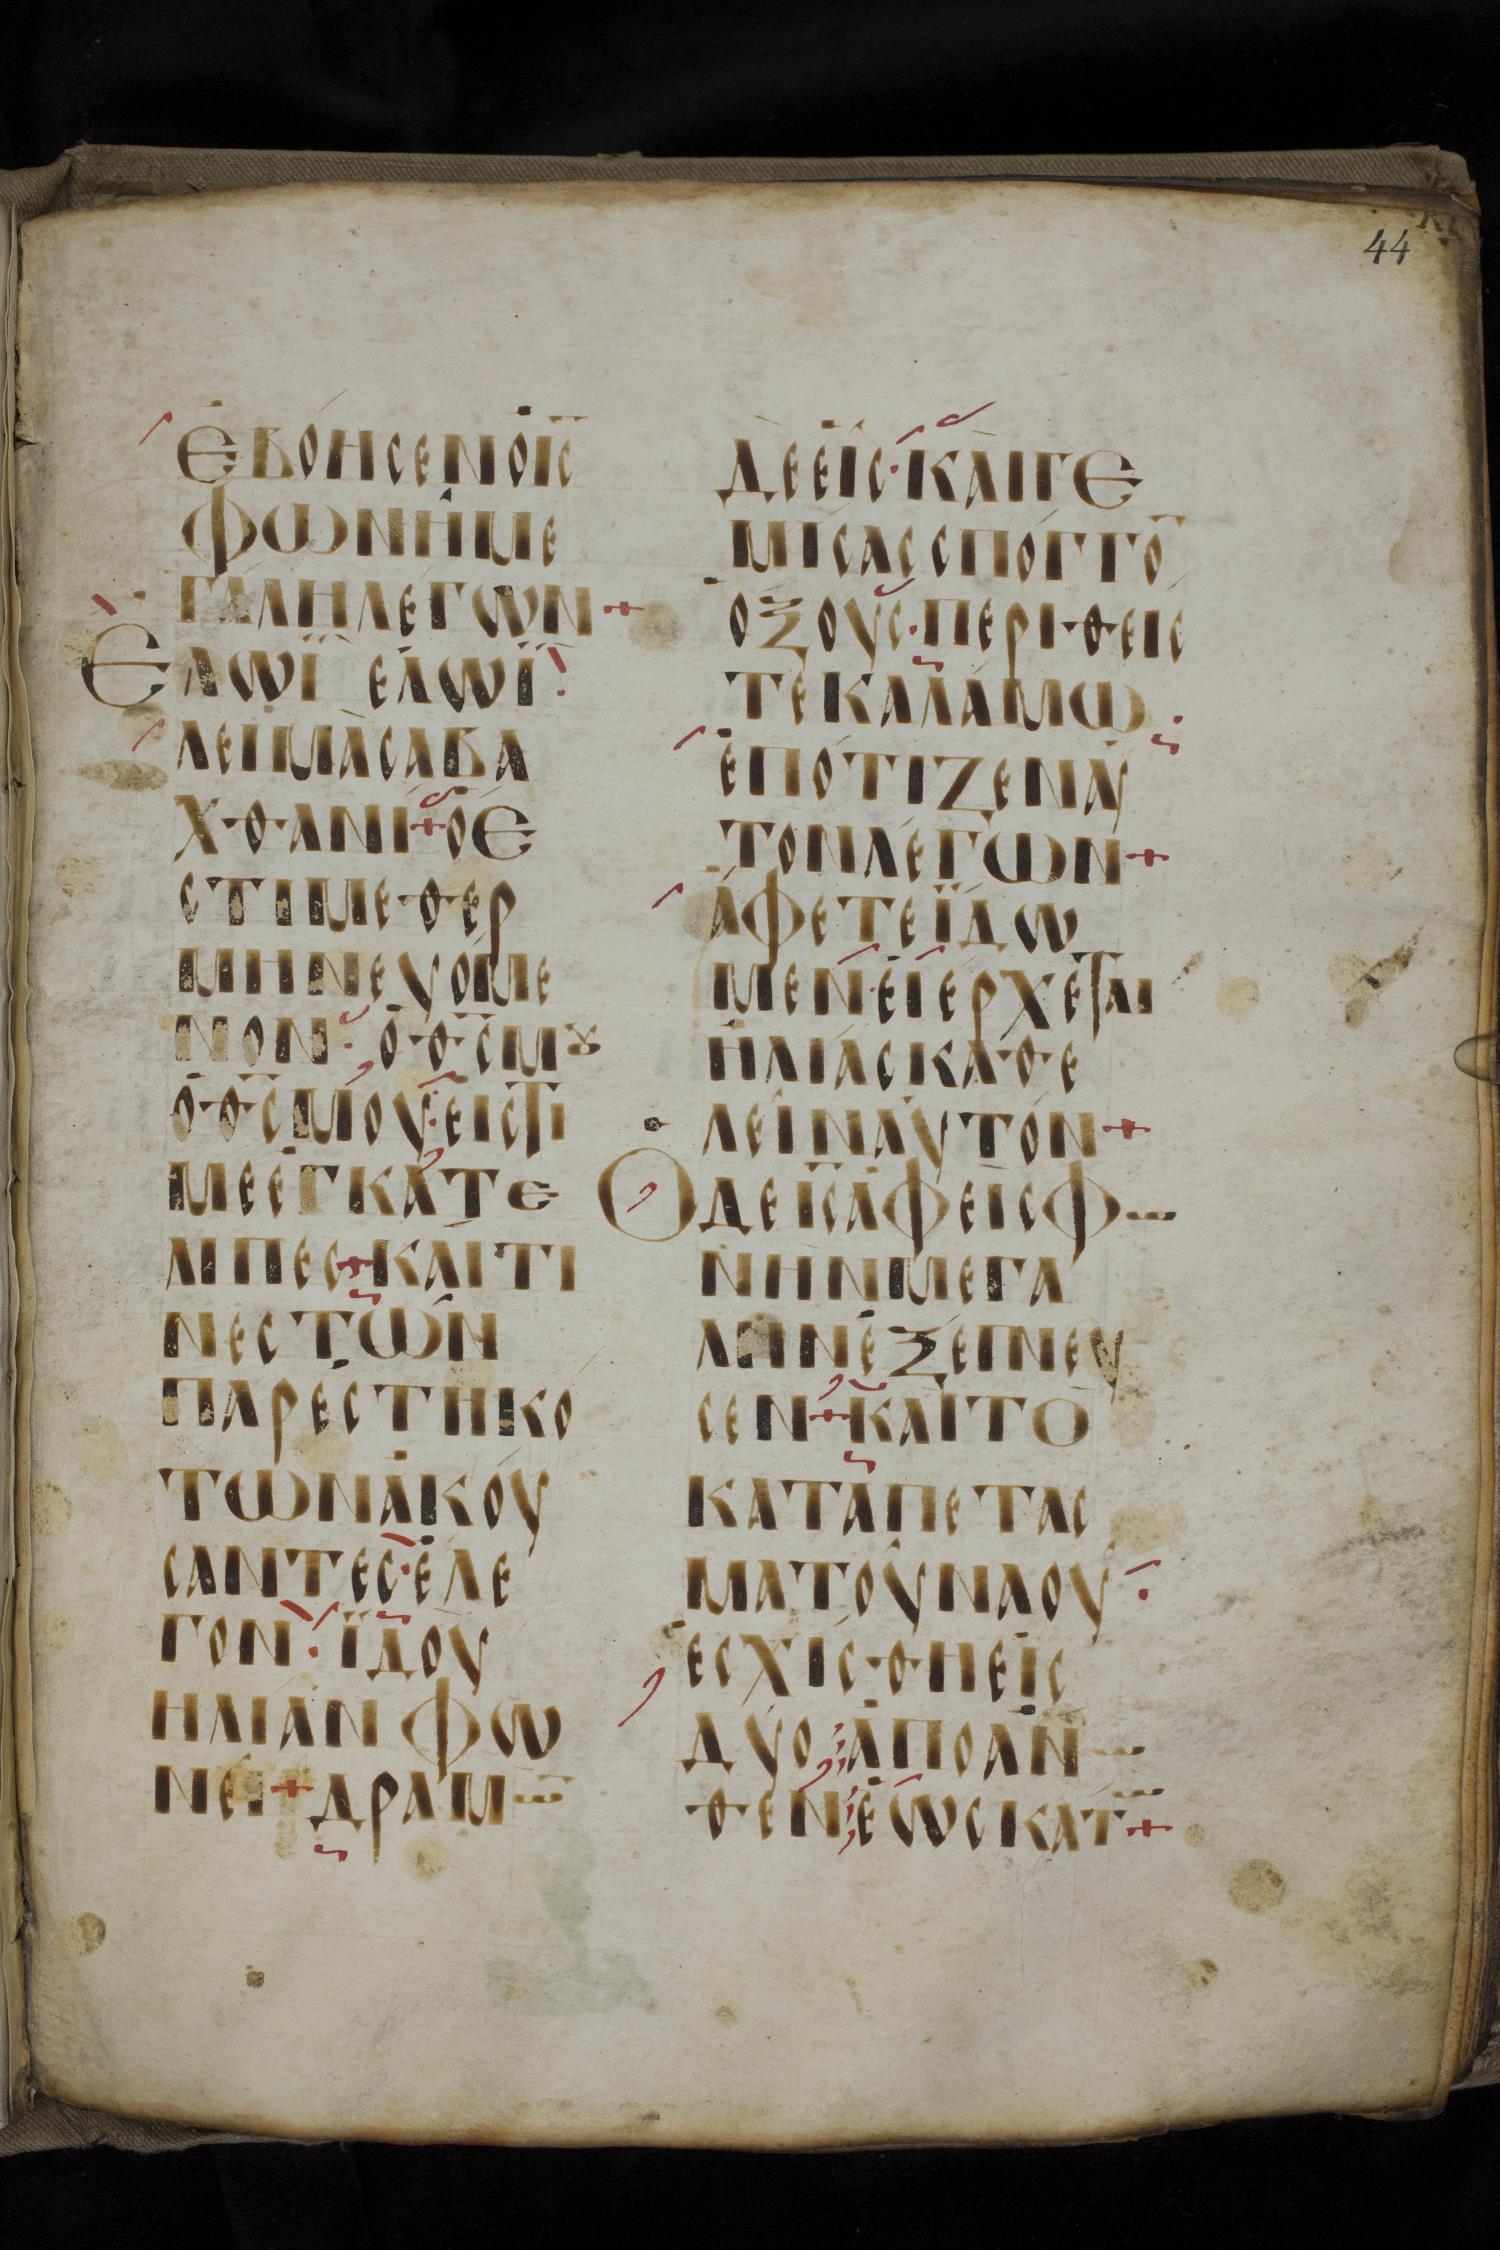 44
ἐβόησενὁῙ̅Ϲ̅
φωνῆμε
γάληλέγων+
Ἐλωϊ ἐλωϊ:
λειμὰσαβα
χθανι+ὅἐ
στιμεθερ
μηνευόμε
νον· ὁΘ̅Ϲ̅μȣ
ὁΘ̅Ϲ̅μου·εἰστί
μεἐγκατε
λιπες+καίτι
νεςτῶν
παρεστηκό
τωνἀκού
σαντες·ἔλε
γον·ἴδου
ἠλίανφω
νεῖ+δραμ
δεεἷς·καὶγε
μίσαςσπόγγο̅
ὄξους·περιθείς
τεκαλάμω·
ἐπότιζεναὐ
τονλέγων+
ἄφετεἴδω
μεν·εἰἔρχεται
ἠλίαςκαθε
λεῖναὐτόν+
ὉδεῙ̅Ϲ̅ἀφεὶςφ
νὴνμεγά
ληνἐξέπνευ
σεν+καὶτὸ
καταπετασ
ματοῦναοῦ·
ἐσχίσθηεἰς
δύο·ἀπὸἄν
θεν·ἕωςκάτ+